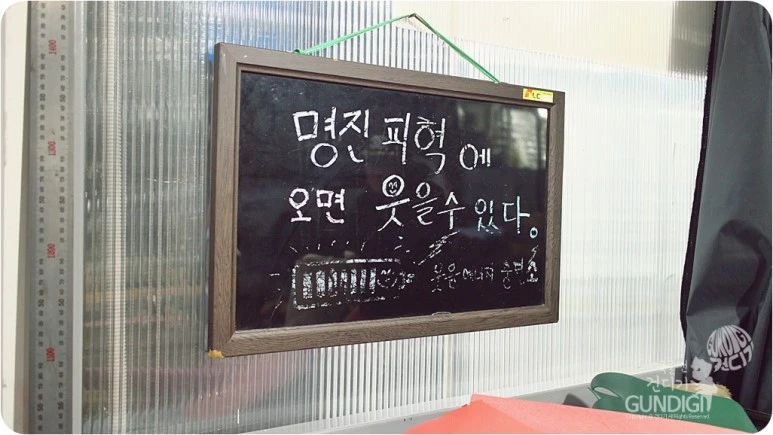 명진 피혁에
오면 웃을수 있다.
웃음에너지 충전소
1300
1200
건디기
GUNDIGI